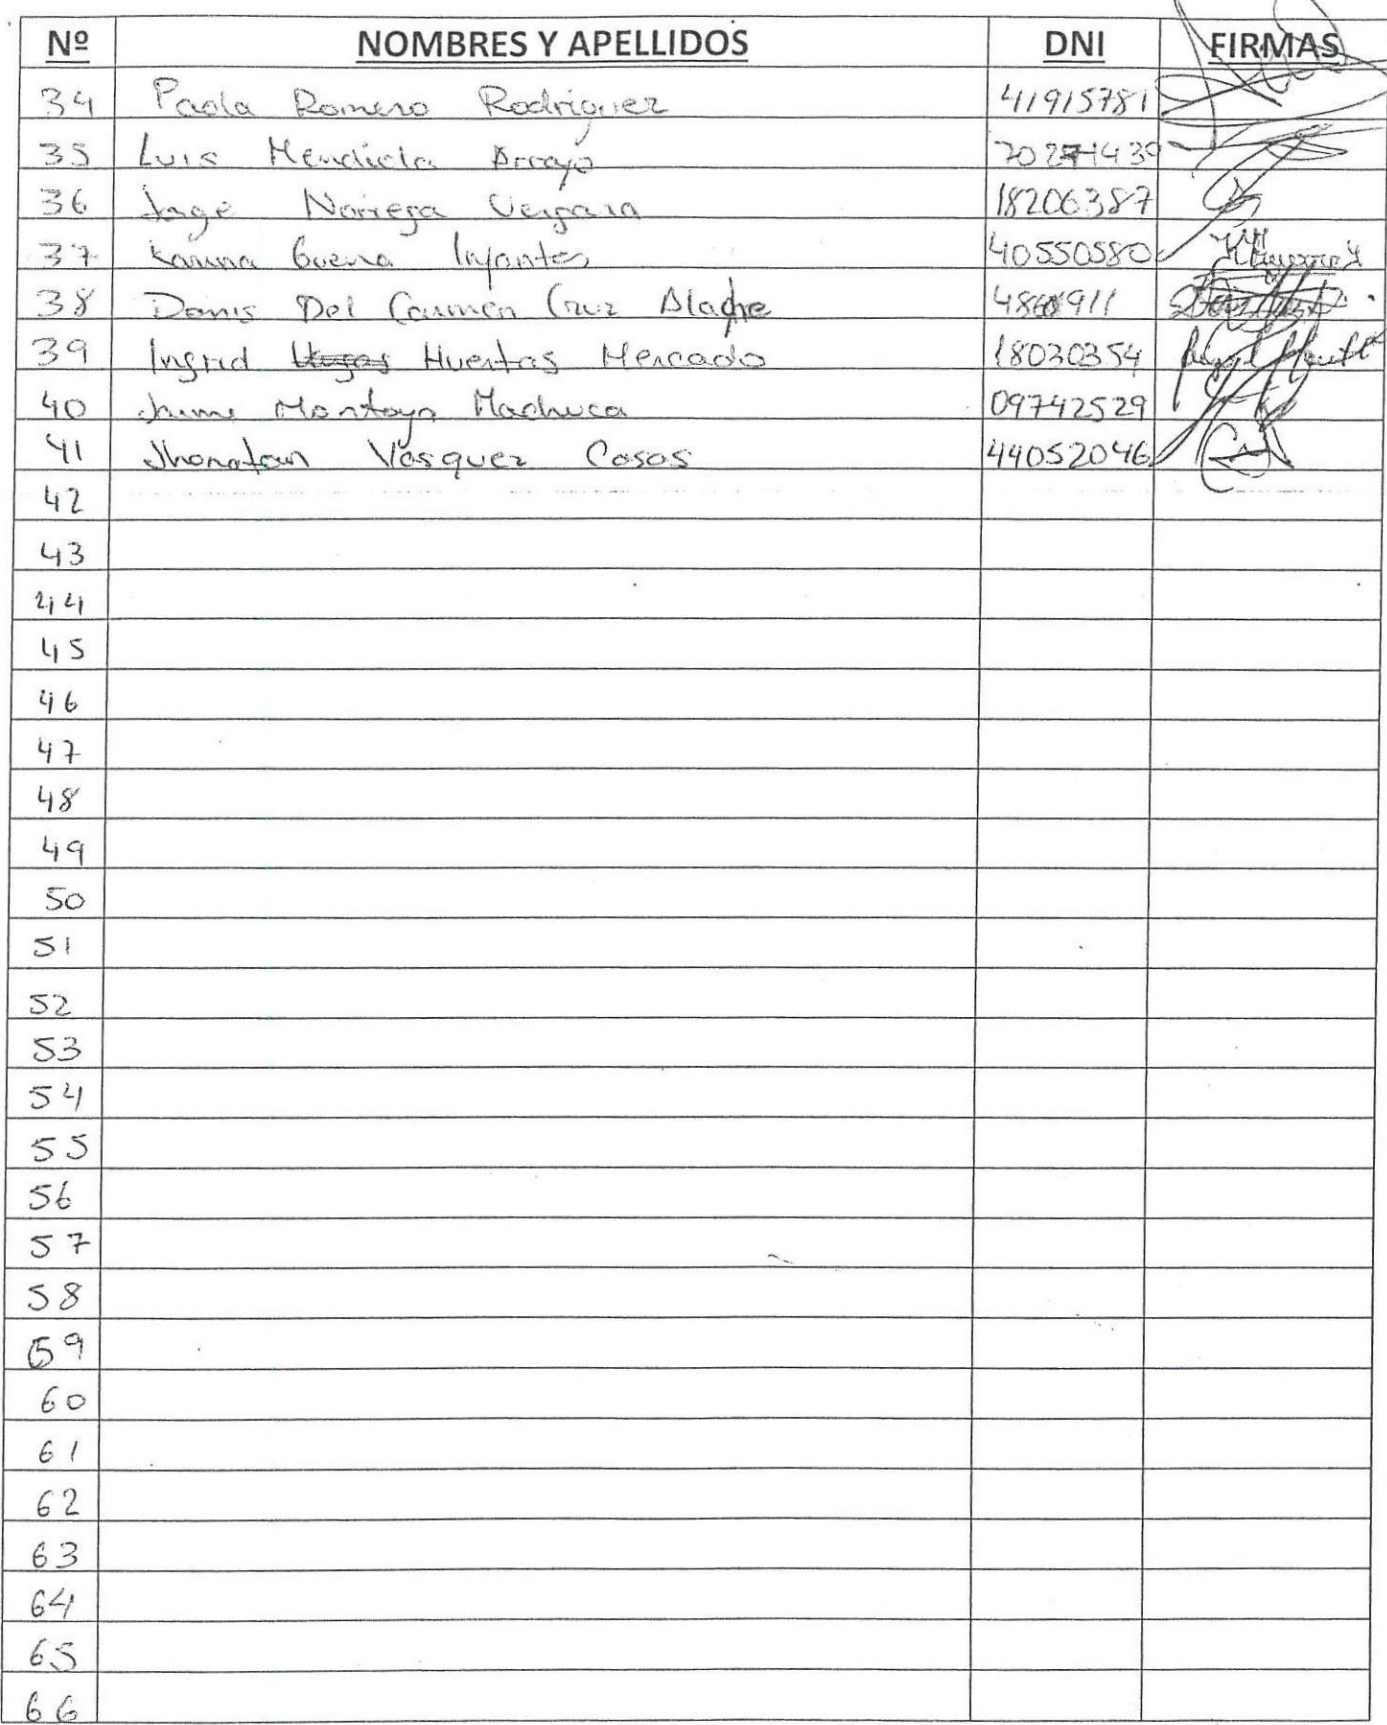 Nº NOMBRES Y APELLIDOS DNI FIRMAS
34 Paola Romero Rodriguez 41915781
35 Luis Mendiola Arroyo
36 Jorge Noriega Vergara 18206387
37 Karina Guerra Infantes 40550580
38 Denis Del Carmen Cruz Alache
39 Ingrid Huertas Mercado 18030354
40 Jaime Montoya Machuca 09742529
41 Jhonatan Vasquez Casos 44052046
42
43
44
45
46
47
48
49
50
51
52
53
54
55
56
57
58
59
60
61
62
63
64
65
66